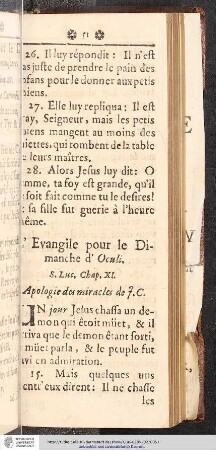 51
26. Il luy répondit: Il n'est
as juste de prendre le pain des
nfans pour le donner aux petis
hiens.
27. Elle luy repliqua: Il est
ray, Seigneur, mais les petis
hiens mangent au moins des
iettes, qui tombent de la table
e leurs maîtres.
28. Alors Jesus luy dit: O
mme, ta foy est grande, qu'il
soit fait comme tu le desires!
t sa fille fut guerie à l'heure
ême.
' Evangile pour le Di-
manche d' Oculi.
S. Luc, Chap. XI.
Apologie des miracles de J. C.
UN jour Jesus chassa un de-
mon qui étoit müet, & il
rriva que le demon étant sorti,
müet parla, & le peuple fut
avi en admiration.
15. Mais quelques uns
entr'eux dirent: Il ne chasse
les